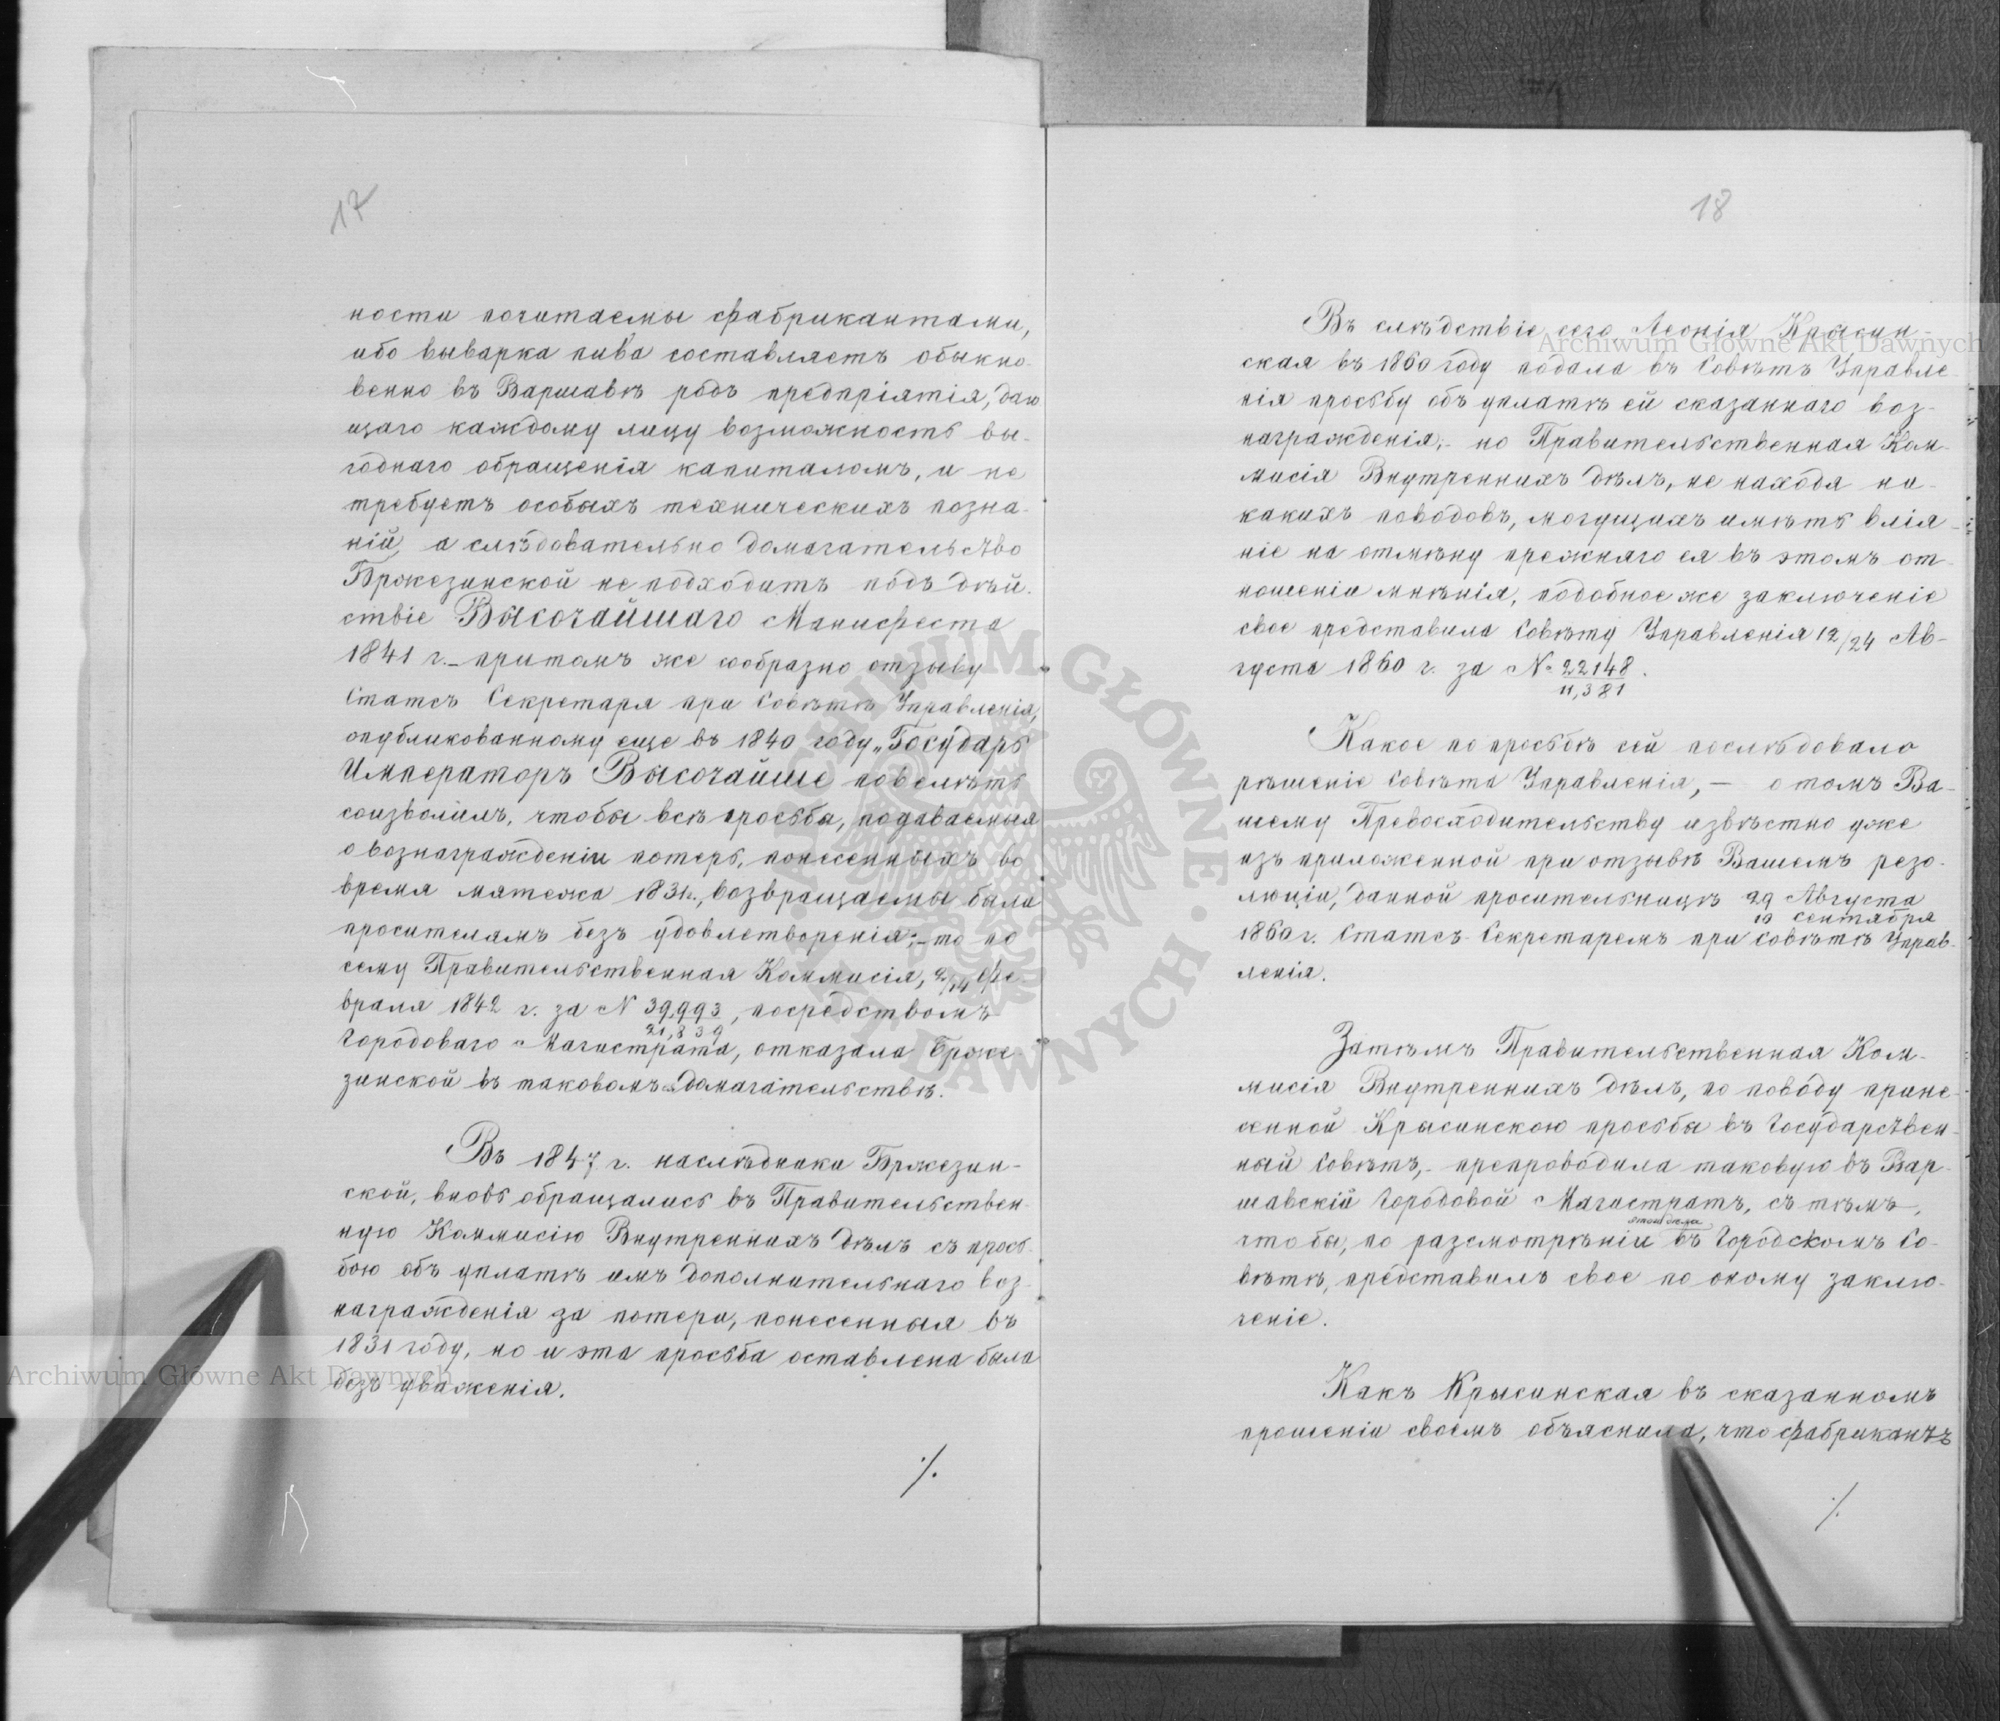 17
ности почитаемы фабрикантами,
ибо выварка пива составляетъ обыкно-
венно въ Варшавѣ родъ предпріятія, даю
щаго каждому лицу возможность вы-
годнаго обращенія капиталомъ, и не
требуетъ особыхъ техническихъ позна-
ній, а слѣдовательно домагательство
Бржезинской не подходитъ подъ дѣй-
ствіе Высочайшаго Манифеста
1841 г. – притомъ же сообразно отзыву
Статсъ Секретаря при Совѣтѣ Управленія,
опубликованному еще въ 1840 году „Государь
Императоръ Высочайше повелѣть
соизволилъ, чтобы всѣ просьбы, подаваемыя
о вознагражденіи потерь, понесенныхъ во
время мятежа 1831 г., возвращаемы были
просителямъ безъ удовлетворенія; – то по
сему Правительственная Коммисія, 2/14 Фе-
враля 1842 г. за N 39,993/21,839, посредствомъ
Городоваго Магистрата, отказала Брже-
зинской въ таковомъ домагательствѣ.
Въ 1847 г. наслѣдники Бржезин-
ской, вновь обращались въ Правительствен-
ную Коммисію Внутреннихъ Дѣлъ съ прось-
бою объ уплатѣ имъ дополнительнаго воз-
награжденія за потери, понесенныя въ
1831 году, но и эта просьба оставлена была
безъ уваженія.
./.
18
Въ слѣдствіе сего Леонія Крысин-
ская въ 1860 году подала въ Совѣтъ Управле-
нія просьбу объ уплатѣ ей сказаннаго воз-
награжденія; – но Правительственная Ком-
мисія Внутреннихъ Дѣлъ, не находя ни-
какихъ поводовъ, могущихъ имѣть влія-
ніе на отмѣну прежняго ея въ этомъ от-
ношеніи мнѣнія, подобное же заключеніе
свое представила Совѣту Управленія 12/24 Ав-
густа 1860 г. за № 22148/11,381.
Какое по просьбѣ сей послѣдовало
рѣшеніе Совѣта Управленія, – о томъ Ва-
шему Превосходительству извѣстно уже
изъ приложенной при отзывѣ Вашемъ резо-
люціи, данной просительницѣ 29 Августа/10 Сентября
1860 г. Статсъ-Секретаремъ при Совѣтѣ Управ-
ленія.
Затѣмъ Правительственная Ком-
мисія Внутреннихъ Дѣлъ, по поводу прине-
сенной Крысинскою просьбы въ Государствен-
ный Совѣтъ, – препроводила таковую въ Вар-
шавскій Городовой Магистратъ, съ тѣмъ,
чтобы, по разсмотрѣніи въ Городскомъ Со-
вѣтѣ, представилъ свое по оному заклю-
ченіе.
Какъ Крысинская въ сказанномъ
прошеніи своемъ объяснила, что фабрикантъ
./.
Archiwum Główne Akt Dawnych
Archiwum Główne Akt Dawnych
ARCHIWUM GŁÓWNE AKT DAWNYCH